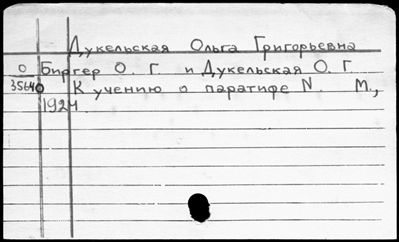 Дукельская Ольга Григорьевна
О Биргер О. Г. и Дукельская О. Г.
35640 К учению о паратифе N. М.,
1924.